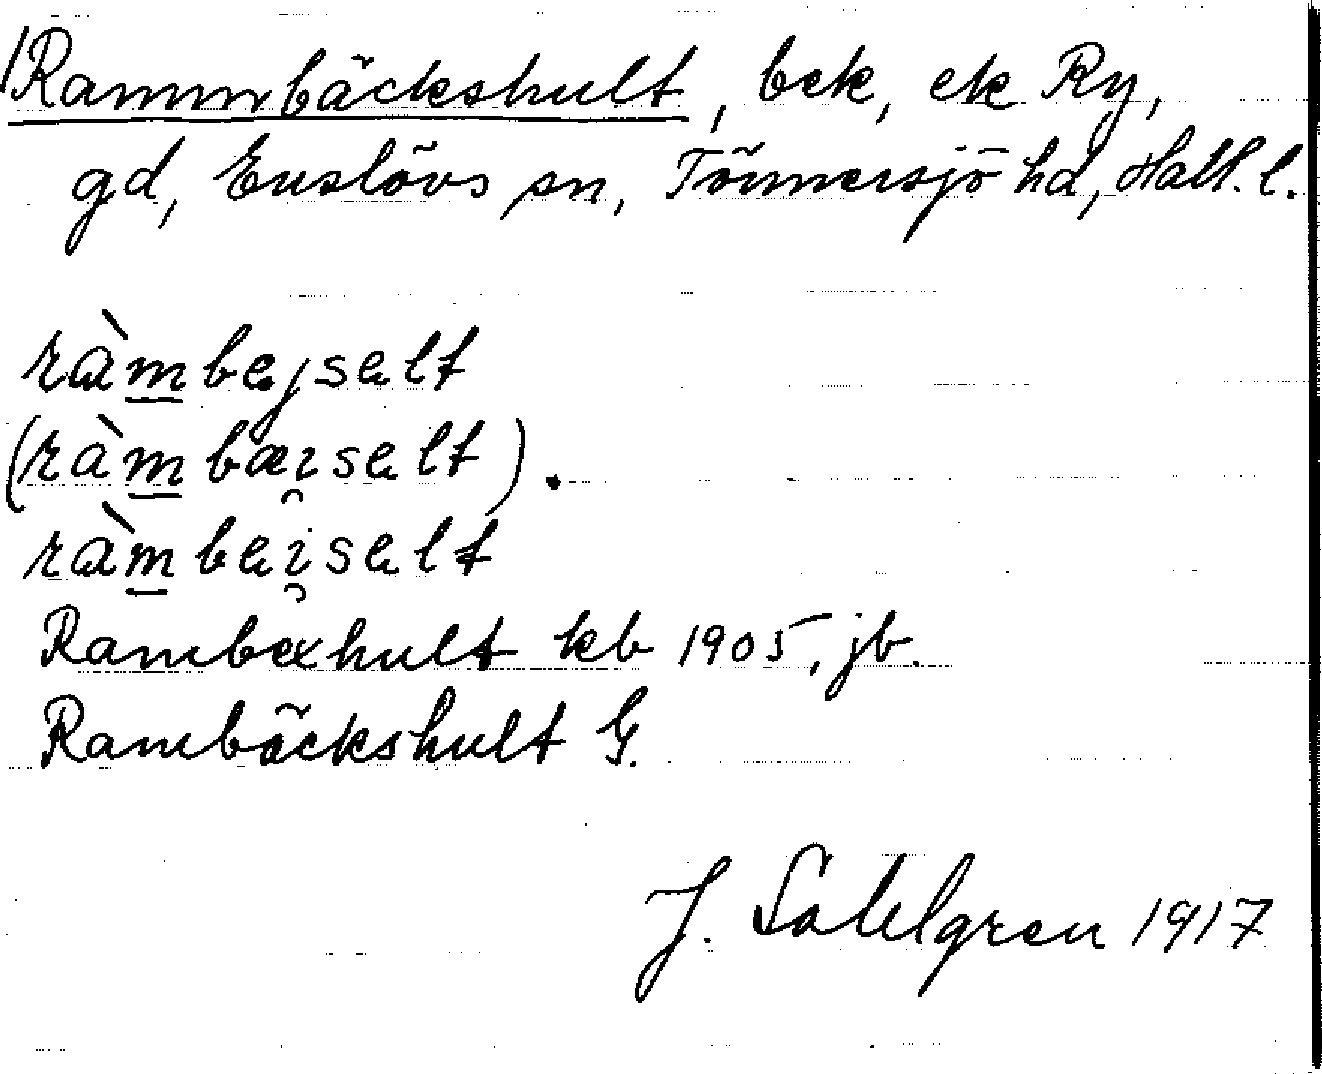 Rammbäckshult, bck, ck Ry,
gd, Enslövs sn, Tönnersjö hd, Hall. l.
ràmbejselt
(ràmbæi̯selt).
ràmbei̯selt
Rambexhult kb 1905, jb.
Rambäckshult G.
J. Sahlgren 1917